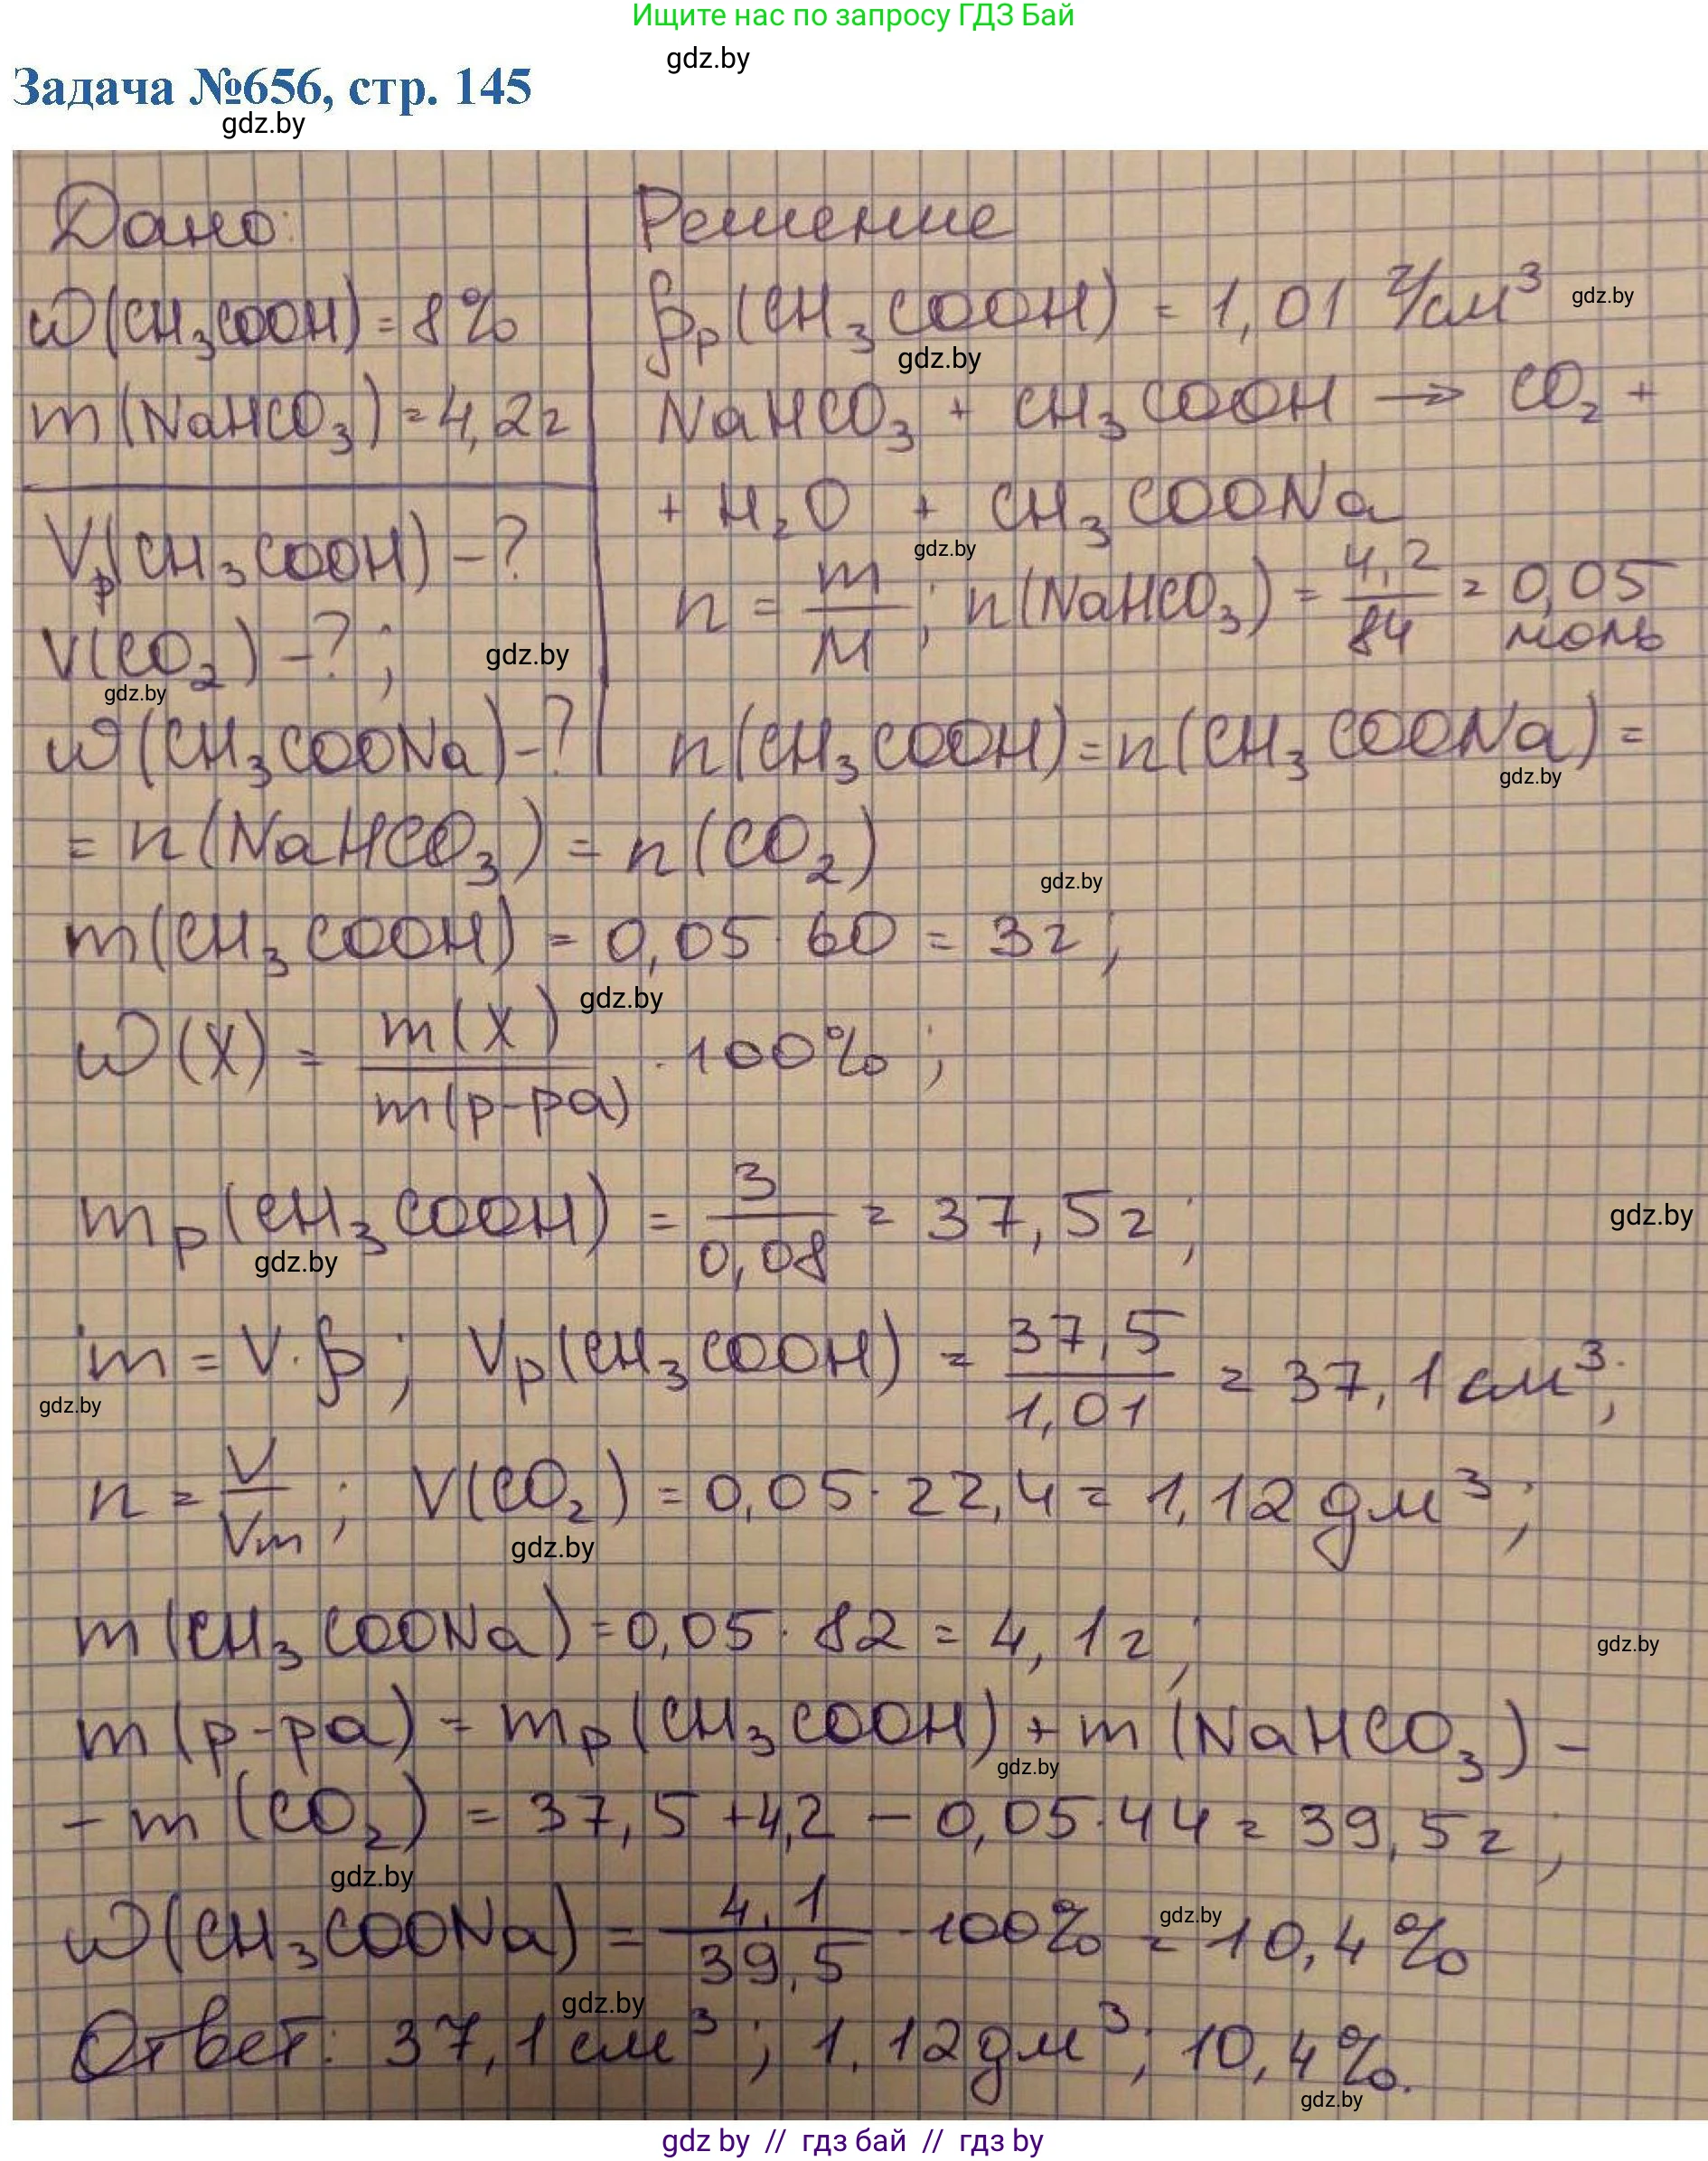 Ищите нас по запросу ГДЗ Бай
gdz.by
Задача №656, стр. 145
gdz.by
Дано:
w(CH₃COOH)=8%
m(NaHCO₃)=4,2г
Vр(CH₃COOH)-?
V(CO₂)-?;
gdz.by
gdz.by
w(CH₃COONa)-?
Решение
ρр(CH₃COOH) = 1,01 г/см³
gdz.by
gdz.by
NaHCO₃ + CH₃COOH → CO₂ +
+ H₂O + CH₃COONa
gdz.by
n = m/M; n(NaHCO₃) = 4,2/84 = 0,05 моль
n(CH₃COOH)=n(CH₃COONa) =
gdz.by
= n(NaHCO₃) = n(CO₂)
gdz.by
m(CH₃COOH) = 0,05·60 = 3г;
gdz.by
w(X) = m(X)/m(р-ра) · 100%;
mр(CH₃COOH) = 3/0,08 = 37,5г;
gdz.by
gdz.by
m = V·ρ; Vр(CH₃COOH) = 37,5/1,01 = 37,1см³;
gdz.by
n = V/Vm; V(CO₂) = 0,05·22,4 = 1,12дм³;
gdz.by
m(CH₃COONa)=0,05·82 = 4,1г;
gdz.by
m(р-ра) = mр(CH₃COOH) + m(NaHCO₃) -
gdz.by
- m(CO₂) = 37,5+4,2 - 0,05·44 = 39,5г;
gdz.by
w(CH₃COONa) = 4,1/39,5 · 100% = 10,4%
gdz.by
gdz.by
Ответ: 37,1см³; 1,12дм³; 10,4%.
gdz.by
gdz by // гдз бай // гдз by